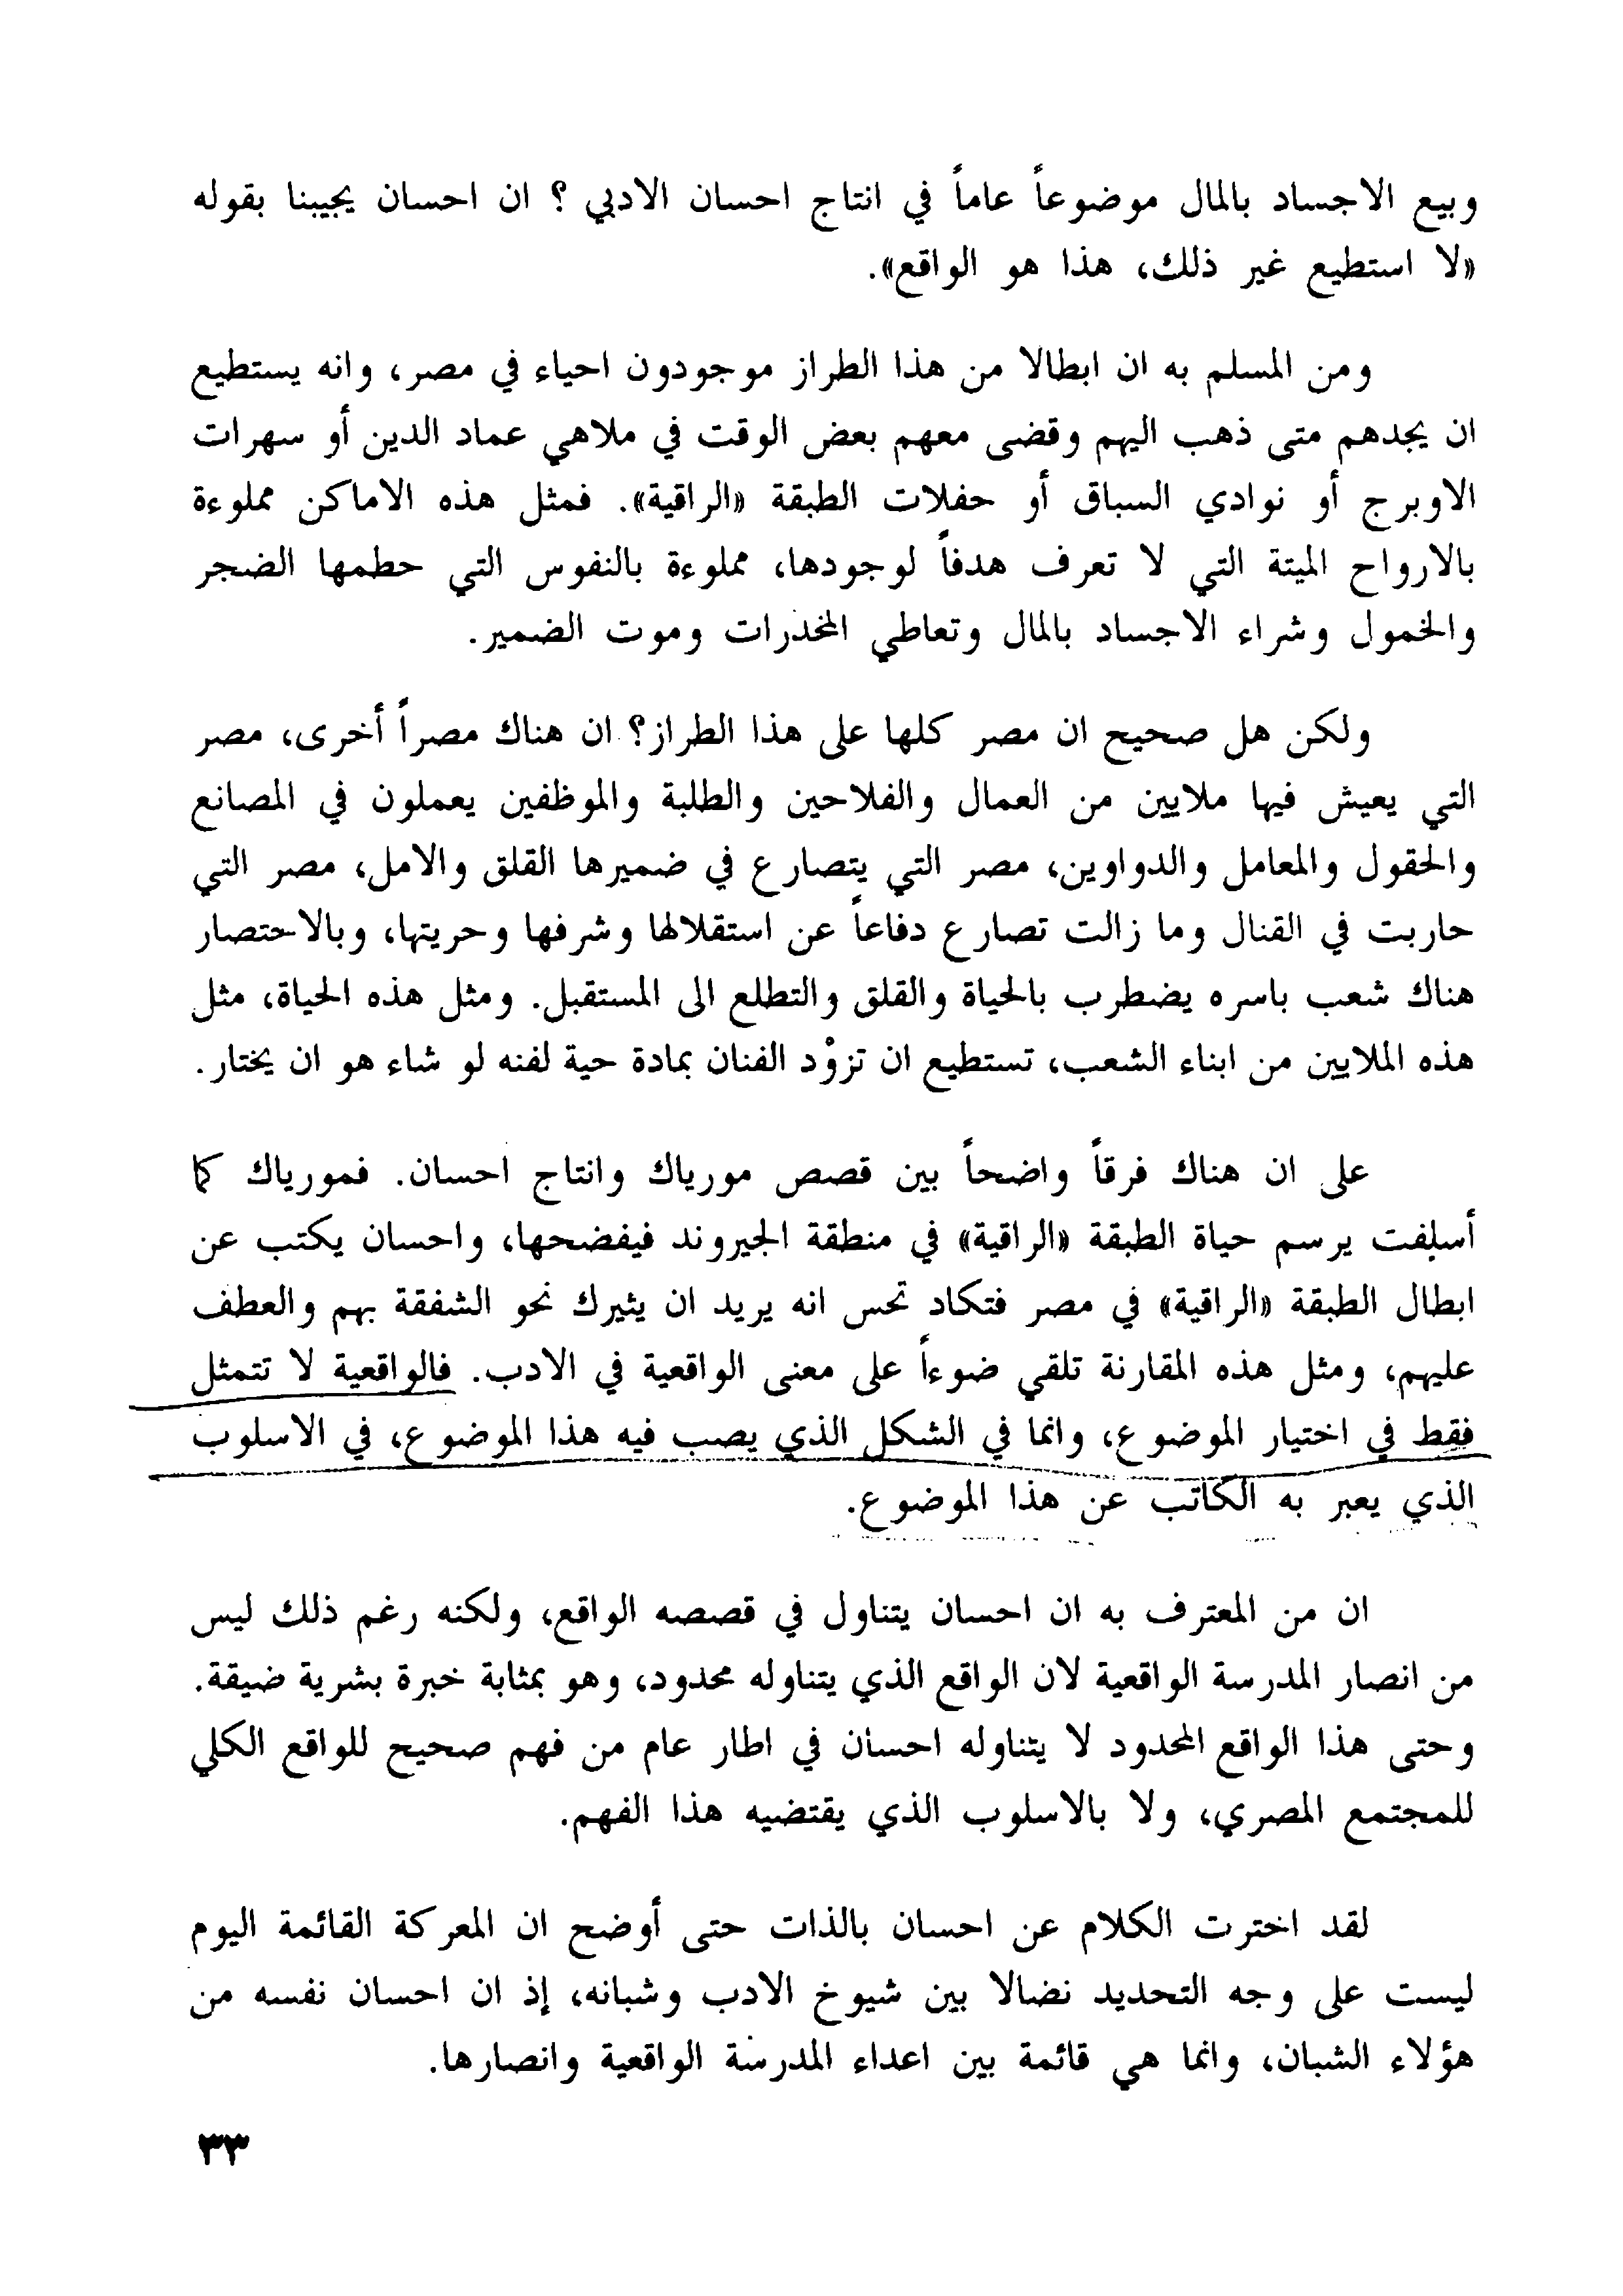 وبيع الاجساد بالمال موضوعاً عاماً في انتاج احسان الادبي ؟ ان احسان يجيبنا بقوله
«لا استطيع غير ذلك، هذا هو الواقع».
ومن المسلم به ان ابطالا من هذا الطراز موجودون احياء في مصر، وانه يستطيع
ان يجدهم متى ذهب اليهم وقضى معهم بعض الوقت في ملاهي عماد الدين أو سهرات
الاوبرج أو نوادي السباق أو حفلات الطبقة «الراقية». فمثل هذه الاماكن مملوءة
بالارواح الميتة التي لا تعرف هدفاً لوجودها، مملوءة بالنفوس التي حطمها الضجر
والخمول وشراء الاجساد بالمال وتعاطي المخدرات وموت الضمير.
ولكن هل صحيح ان مصر كلها على هذا الطراز؟ ان هناك مصراً أخرى، مصر
التي يعيش فيها ملايين من العمال والفلاحين والطلبة والموظفين يعملون في المصانع
والحقول والمعامل والدواوين، مصر التي يتصارع في ضميرها القلق والامل، مصر التي
حاربت في القنال وما زالت تصارع دفاعاً عن استقلالها وشرفها وحريتها، وبالاحتصار
هناك شعب باسره يضطرب بالحياة والقلق والتطلع الى المستقبل. ومثل هذه الحياة، مثل
هذه الملايين من ابناء الشعب، تستطيع ان تزوْد الفنان بمادة حية لفنه لو شاء هو ان يختار.
على ان هناك فرقاً واضحاً بين قصص مورياك وانتاج احسان. فمورياك كما
أسلفت يرسم حياة الطبقة «الراقية» في منطقة الجيروند فيفضحها، واحسان يكتب عن
ابطال الطبقة «الراقية» في مصر فتكاد تحس انه يريد ان يثيرك نحو الشفقة بهم والعطف
عليهم، ومثل هذه المقارنة تلقي ضوءاً على معنى الواقعية في الادب. فالواقعية لا تتمثل
فقط في اختيار الموضوع، وانما في الشكل الذي يصب فيه هذا الموضوع، في الاسلوب
الذي يعبر به الكاتب عن هذا الموضوع.
ان من المعترف به ان احسان يتناول في قصصه الواقع، ولكنه رغم ذلك ليس
من انصار المدرسة الواقعية لان الواقع الذي يتناوله محدود، وهو بمثابة خبرة بشرية ضيقة.
وحتى هذا الواقع المحدود لا يتناوله احسان في اطار عام من فهم صحيح للواقع الكلي
للمجتمع المصري، ولا بالاسلوب الذي يقتضيه هذا الفهم.
لقد اخترت الكلام عن احسان بالذات حتى أوضح ان المعركة القائمة اليوم
ليست على وجه التحديد نضالا بين شيوخ الادب وشبانه، إذ ان احسان نفسه من
هؤلاء الشبان، وانما هي قائمة بين اعداء المدرسة الواقعية وانصارها.
٣٣